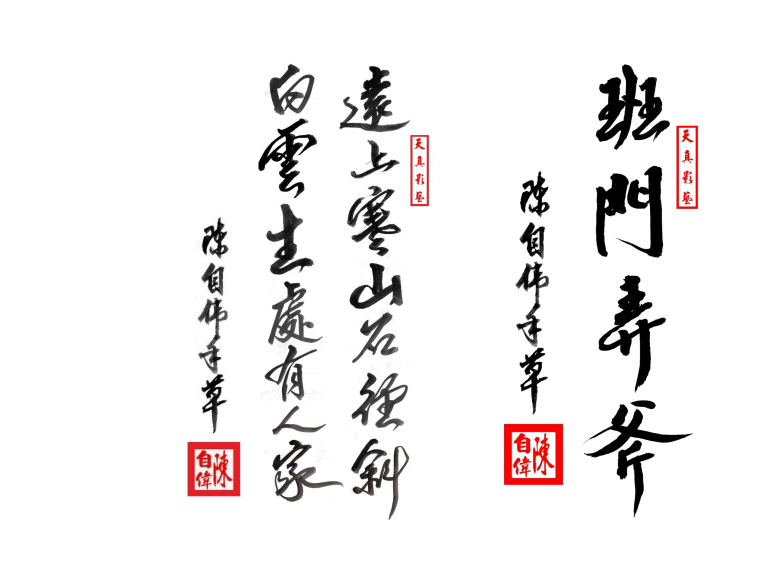 班門弄斧
天真影藝
陳自偉手草
陳自偉
遠上寒山石徑斜
天真影藝
白雲生處有人家
陳自偉手草
陳自偉